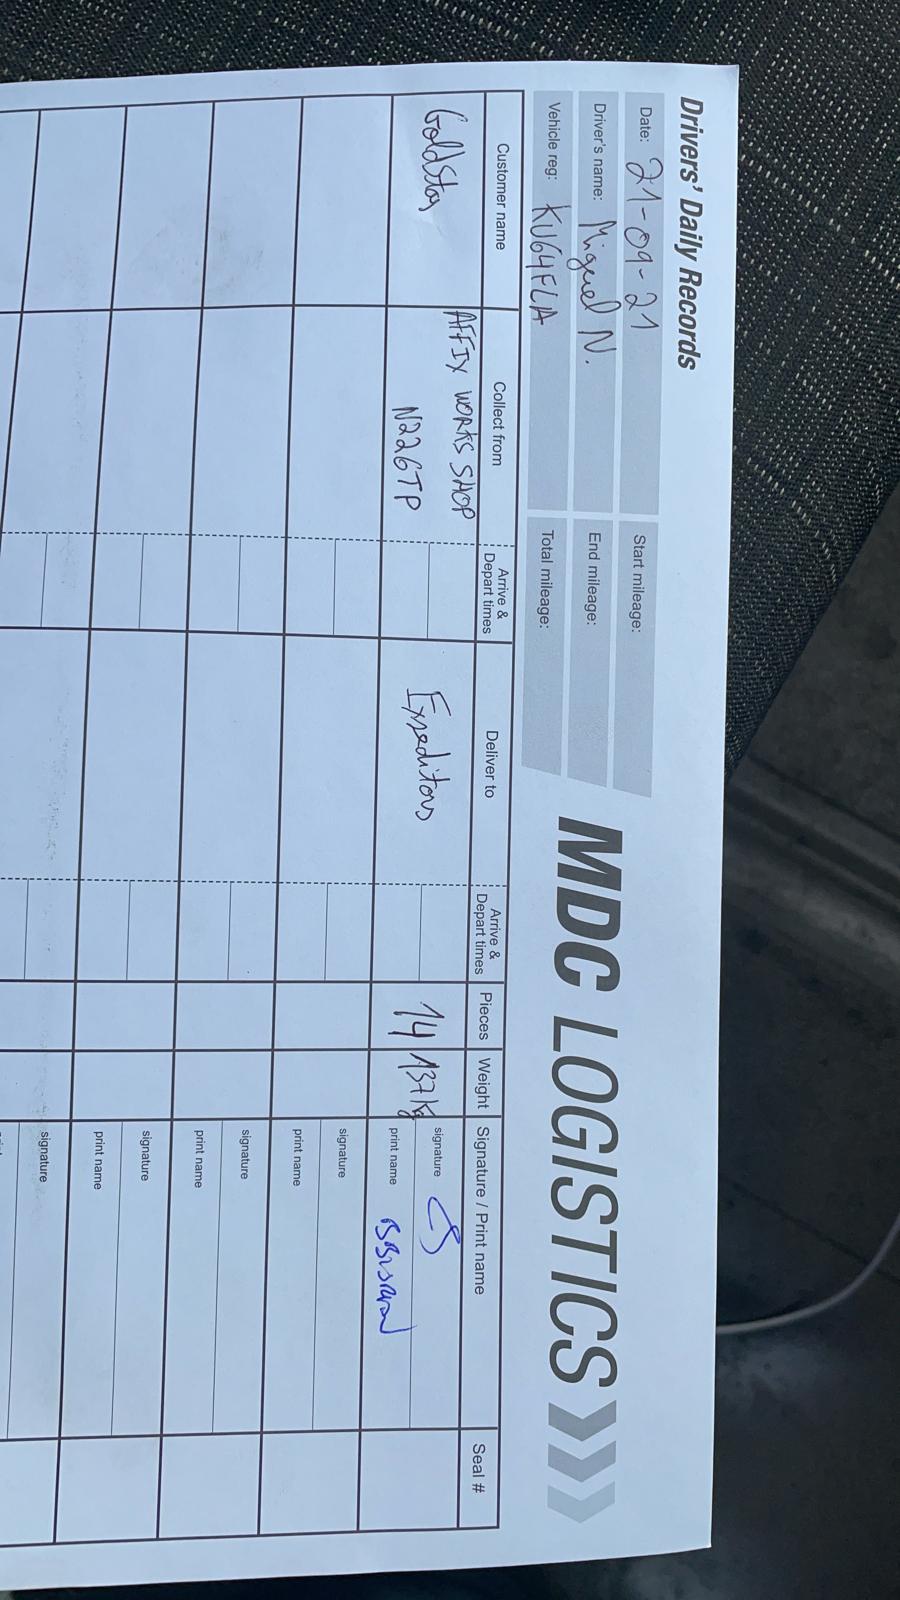 Drivers' Daily Records
MDC LOGISTICS
Date: 21-09-21
Start mileage:
Driver's name: Miguel N.
End mileage:
Vehicle reg: KU64FLA
Total mileage:
Customer name
Collect from
Arrive &
Depart times
Deliver to
Arrive &
Depart times
Pieces
Weight
Signature / Print name
Seal #
GoldStar
AFFIX WORKS SHOP
N226TP
Expeditors
14
137kg
signature
print name
signature
print name
signature
print name
signature
print name
signature